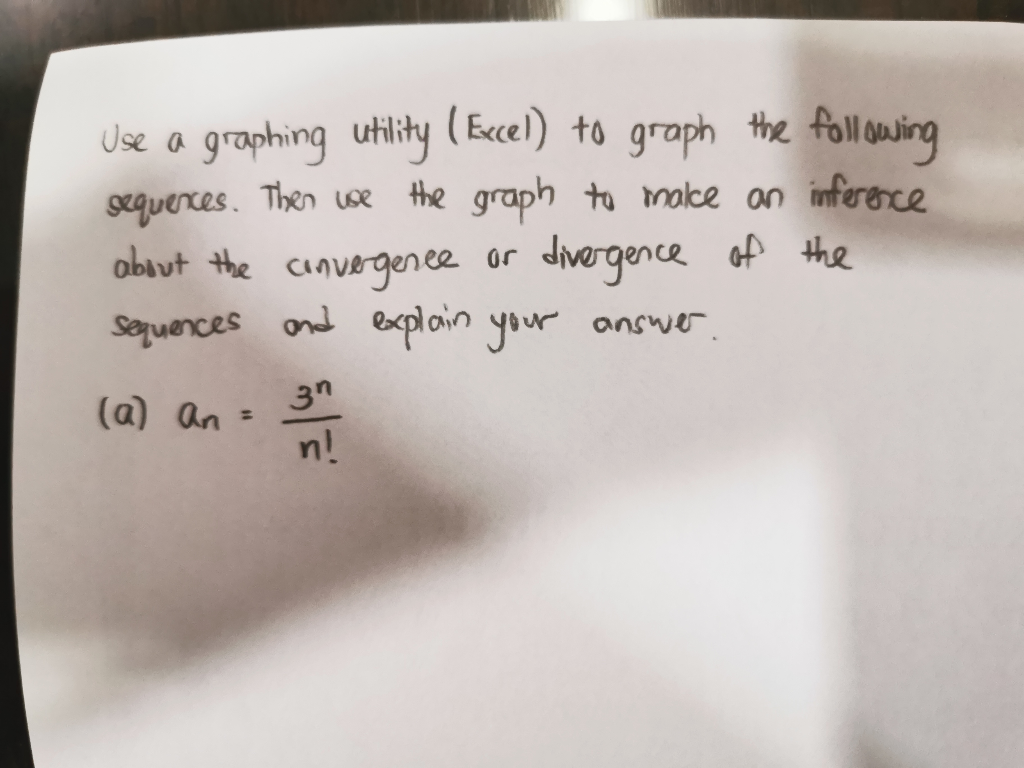 Use a graphing utility (Excel) to graph the following
sequences. Then use the graph to make an inference
about the convergence or divergence of the
sequences and explain your answer.
(a) aₙ = 3ⁿ/n!